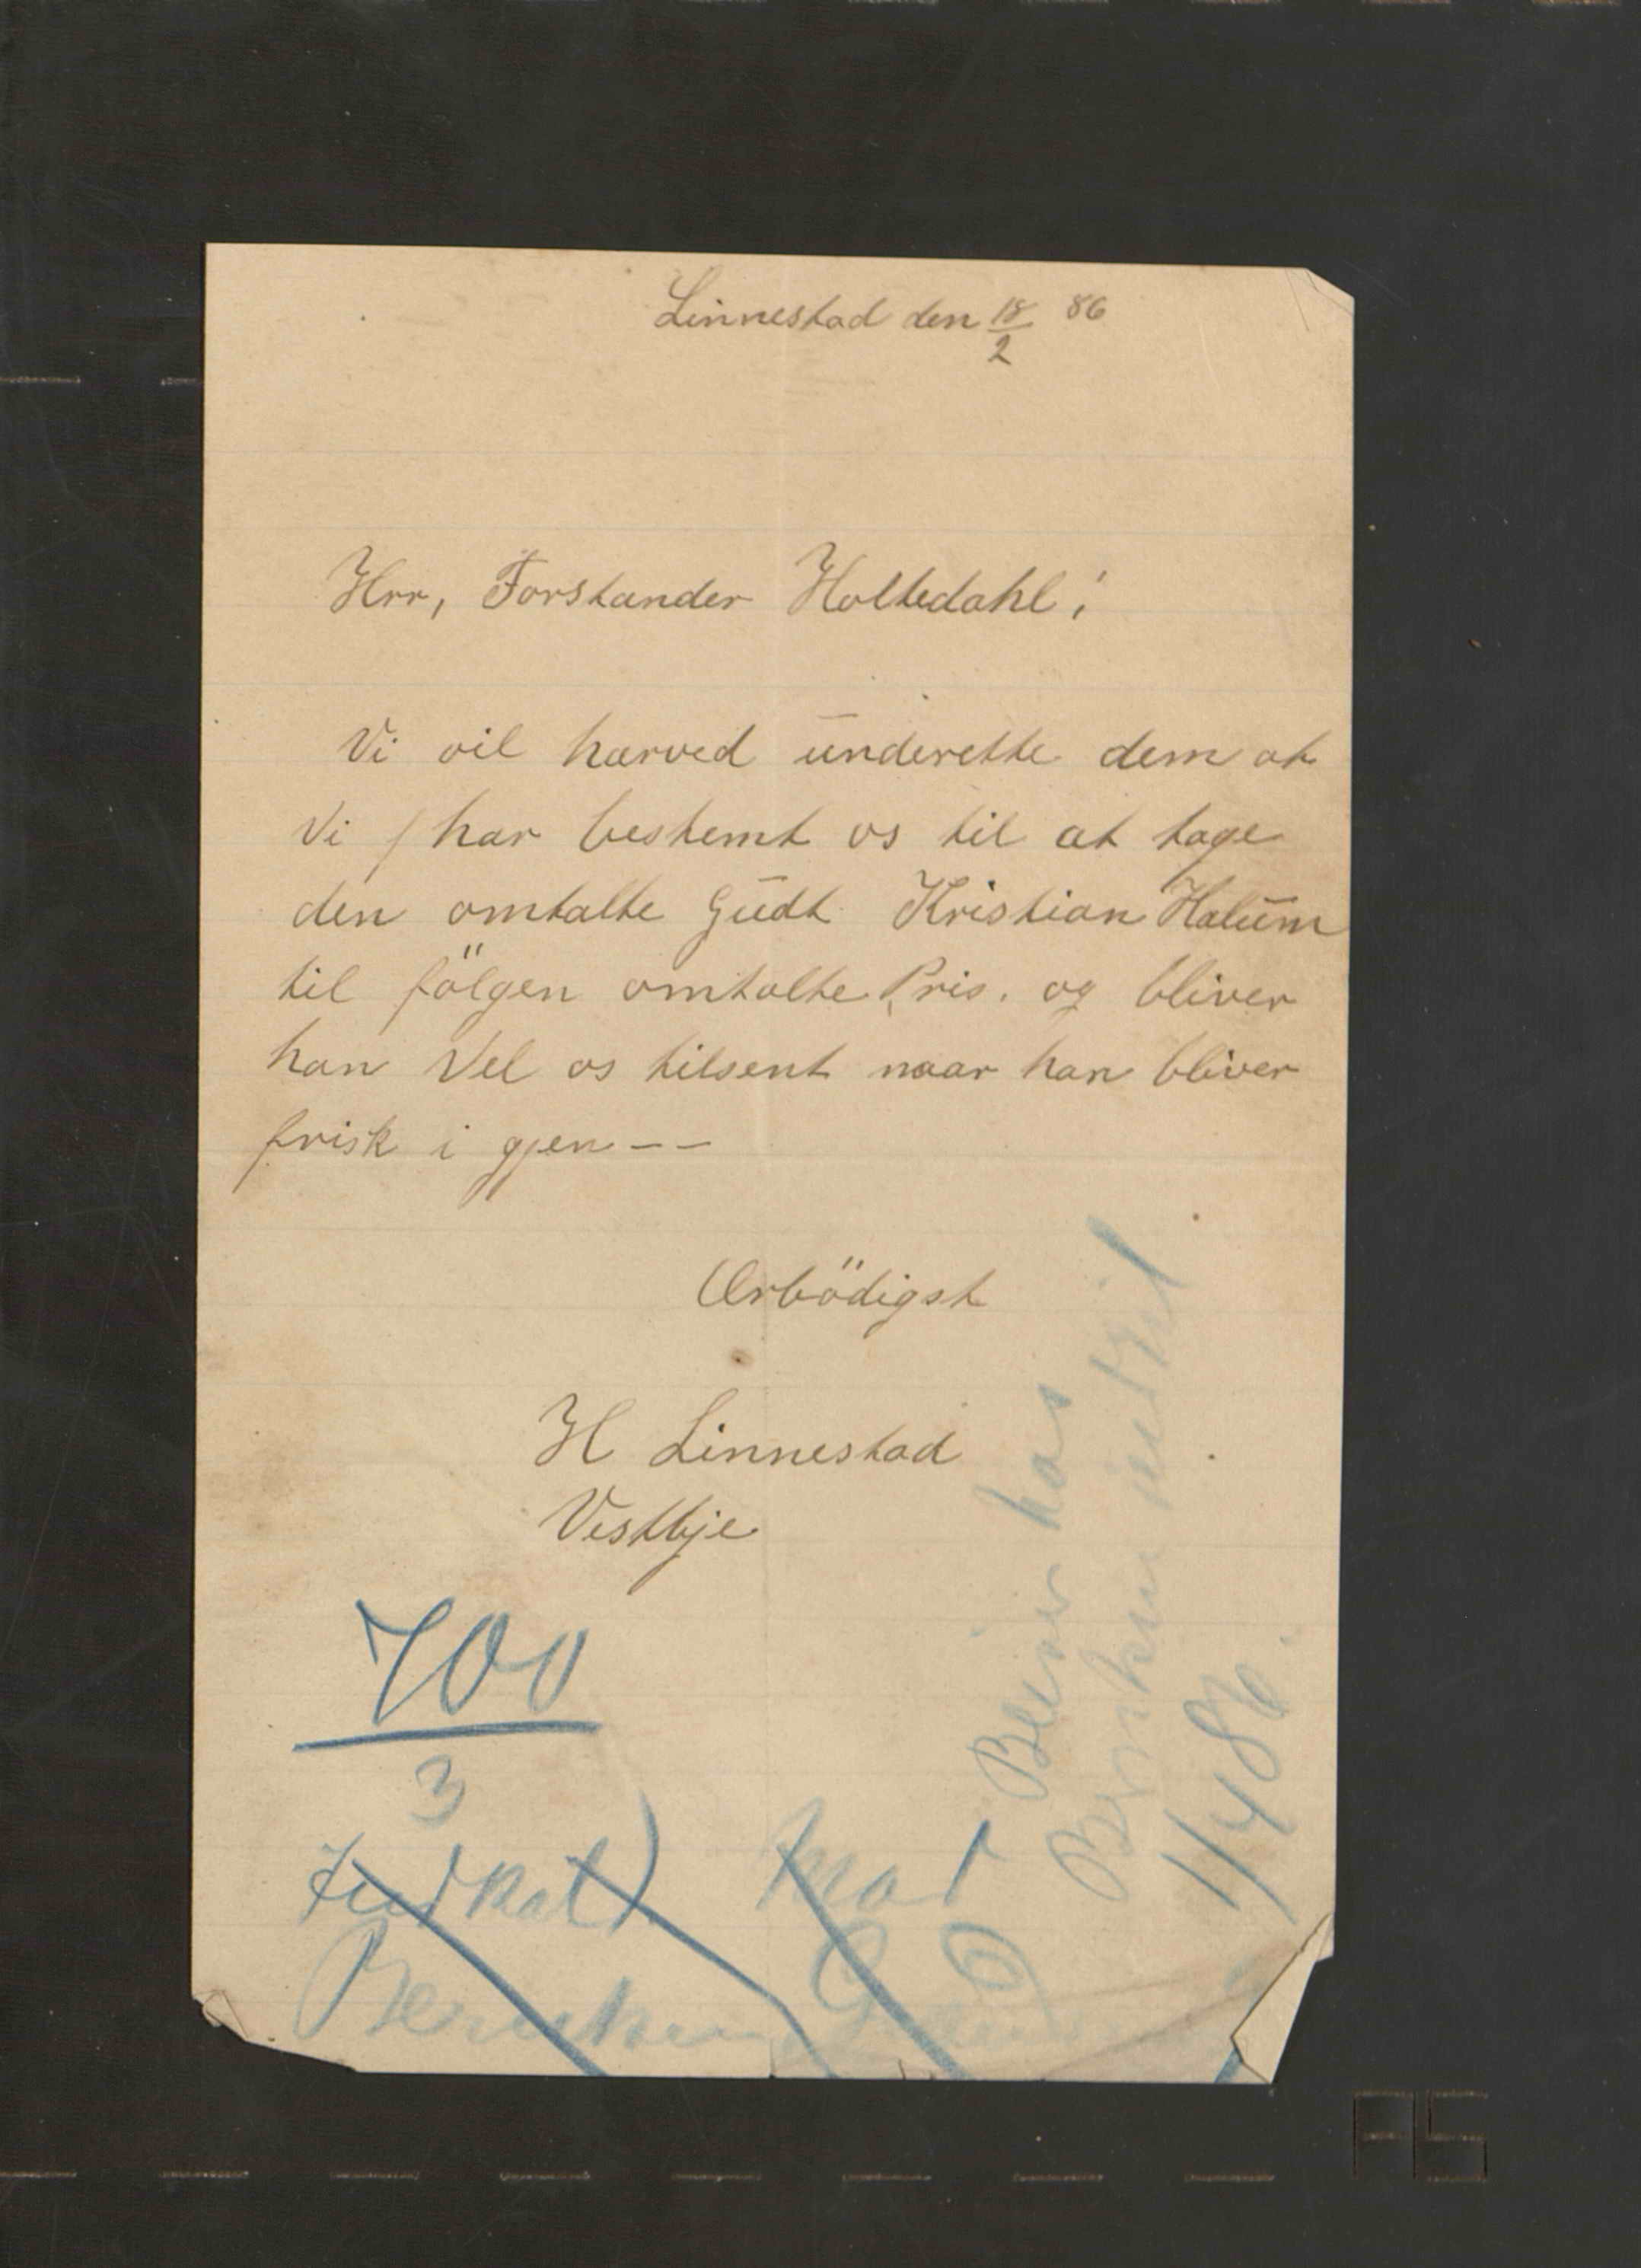 Linnestad den 18/2 86
Hrr, Forstander Holtedahl!
Vi vil hærved ūnderette dem at
Vi har bestemt os til at tage
den omtalte Gūdt Kristian Halūm
til fölgen omtalte Pris. og bliver
han Vel os tilsent naar han bliver
frisk i gjen--
Ærbödigst
H Linnestad
Vestbje
700
3
Bliver hos
1/4 86.